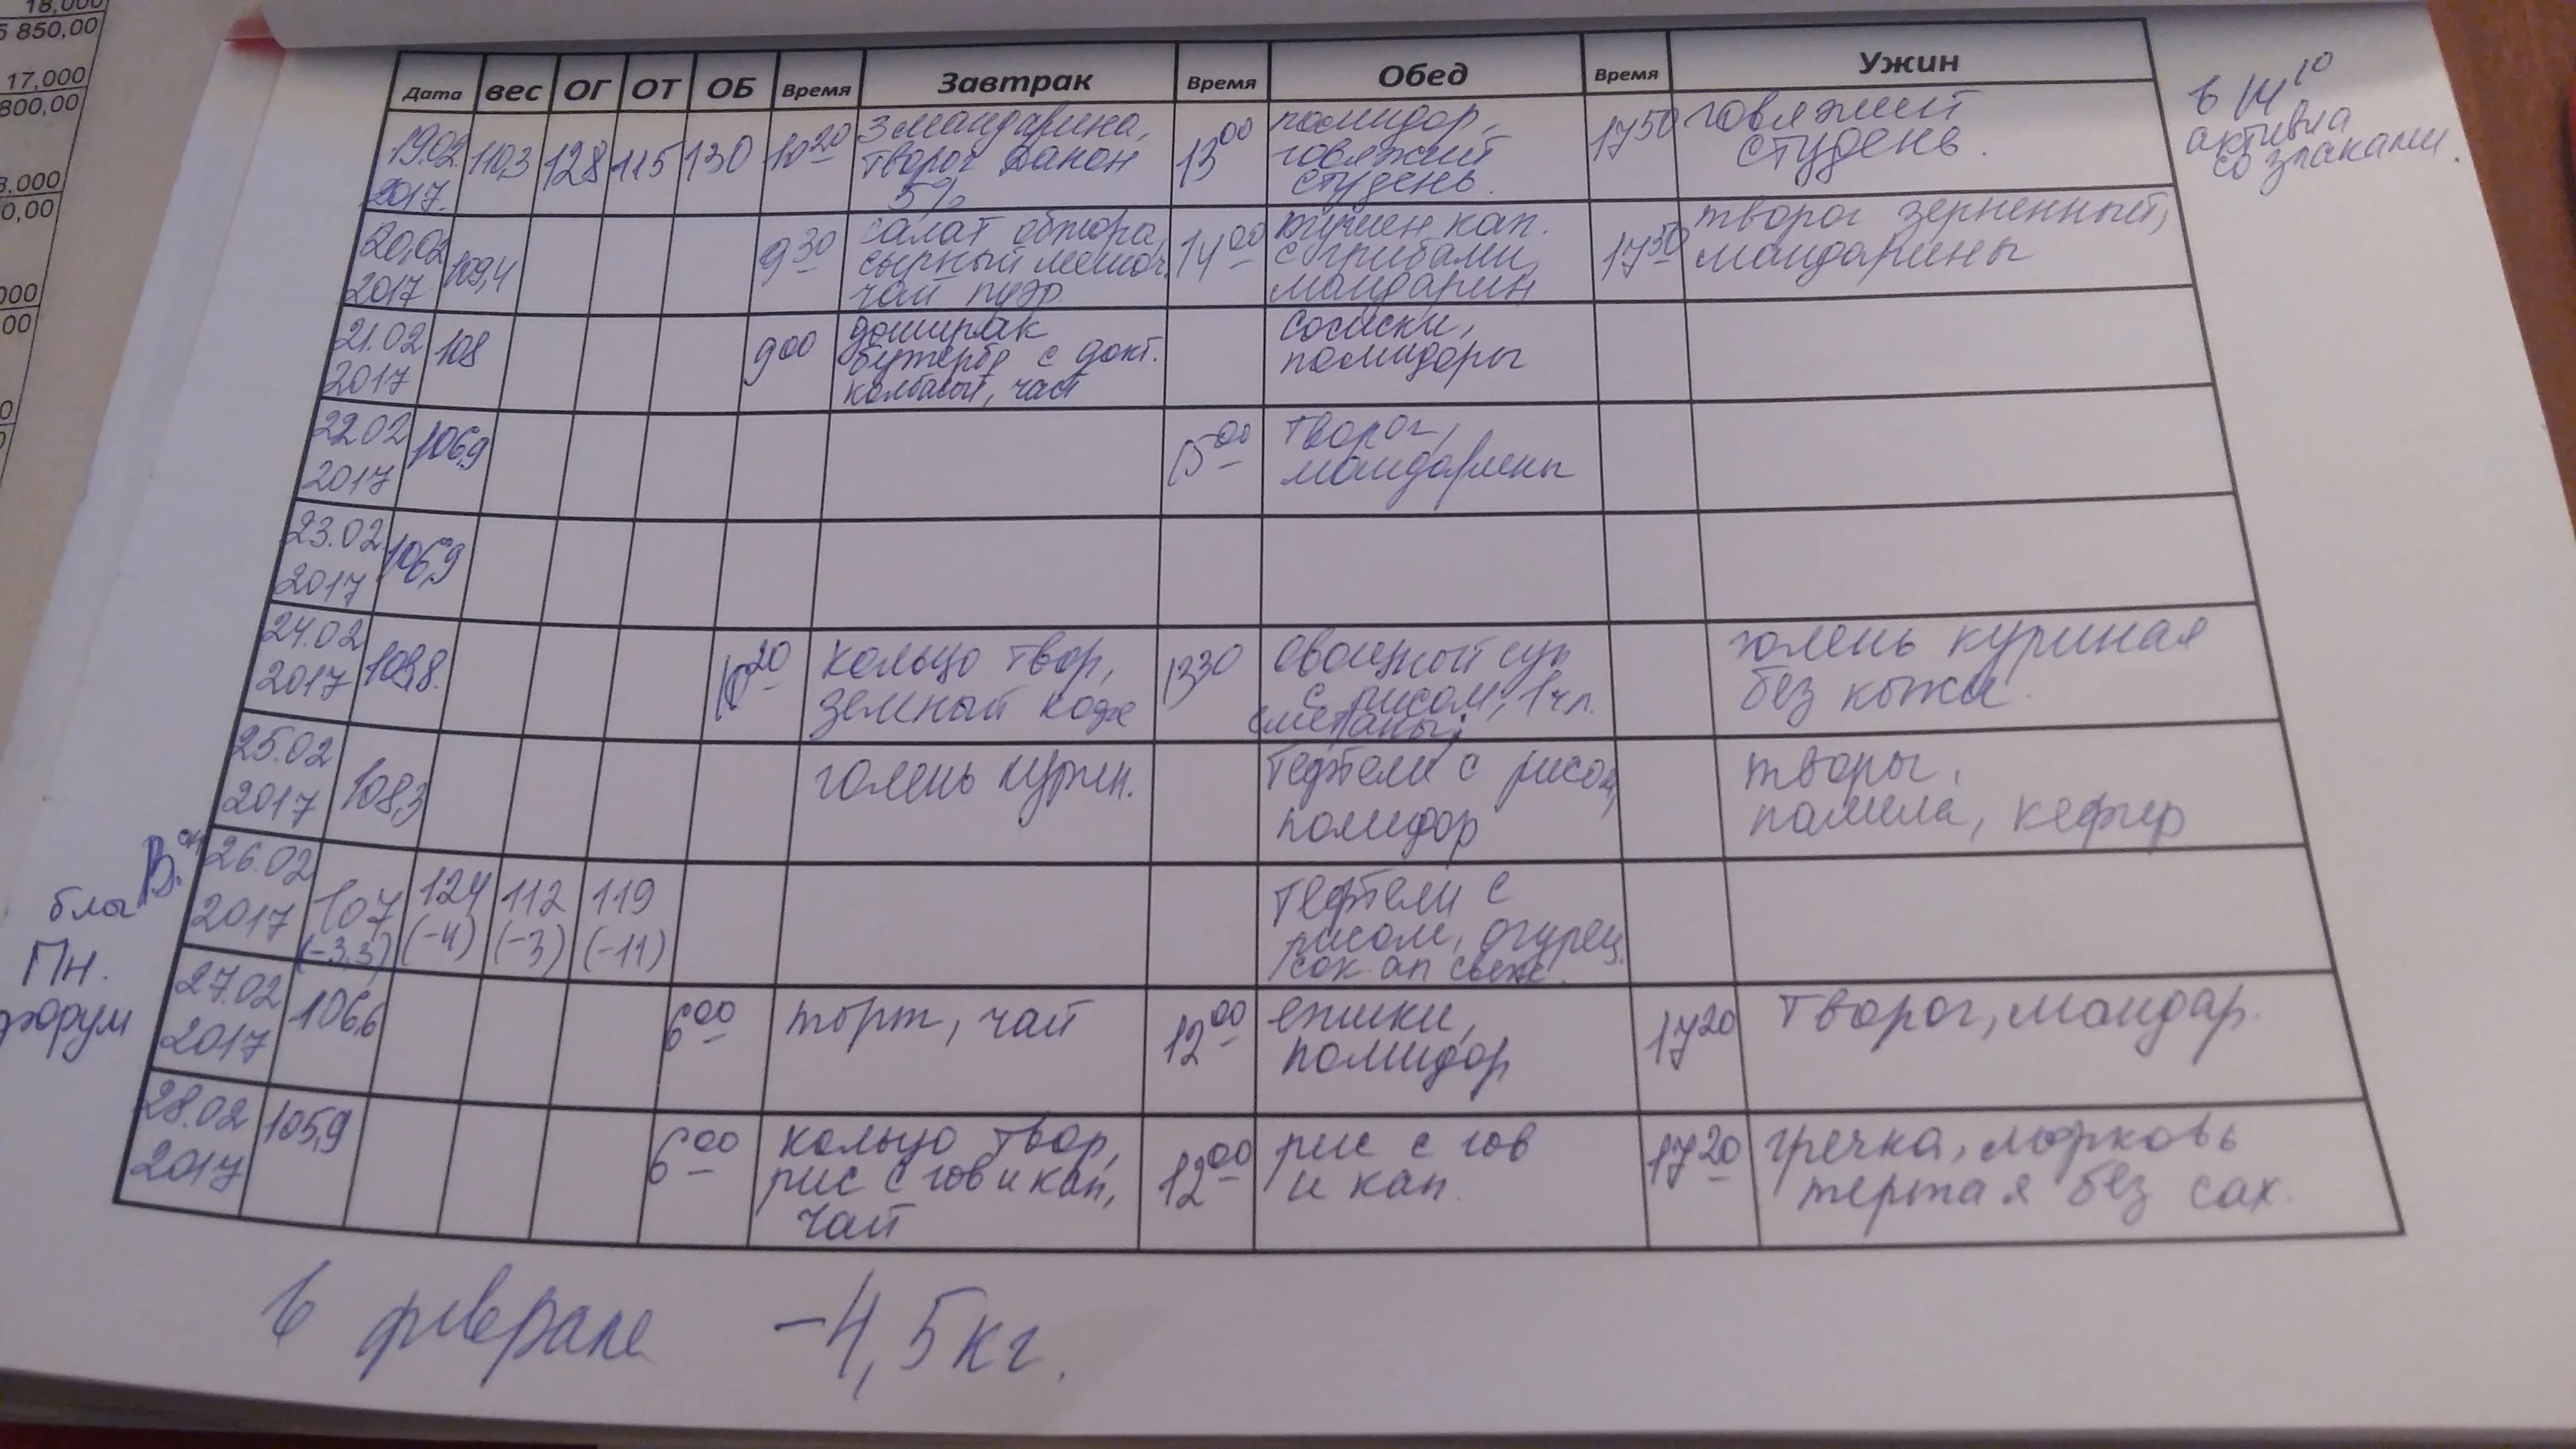 18,000
5 850,00
17,000
800,00
3.000
0,00
000
00
Дата вес ОГ ОТ ОБ Время Завтрак Время Обед Время Ужин
19.02. 2017. 110,3 128 115 130 10 20
3 мандарина,
творог Данон
5%
13 00
помидор,
говяжий
студень.
17 50
говяжий
студень.
в 14 10
активиа
со злаками.
20,02 2017 109,4 9 30
салат обжора,
сырный мешоч.
чай пуэр
14 00
тушен. кап.
с грибами,
мандарин
17 50
творог зерненный,
мандарины
21.02 2017 108 9 00
доширак
бутерб с докт.
колбасой, чай
сосиски,
помидоры
22.02 2017 106,9
15 00
творог,
мандарины
23.02 2017 106,9
24.02 2017 10 20
кольцо твор,
13 30
овощной суп
с рисом, 1 чл.
сметаны
голень куриная
без кожи.
25.02 2017 108,3
голень курин.
тефтели с рисом,
помидор
творог,
памела, кефир
26.02 2017 107 (-3,3) 124 (-4) 112 (-3) 119 (-11)
тефтели с
рисом, огурец,
сок. ап свеж.
блог
Пн.
форум
27.02 2017 106,6 6 00
торт, чай
12 00
ежики,
помидор
17 20
творог, мандар.
28.02 2017 105,9 6 00
кольцо твор,
рис с гов и кап,
чай
12 00
рис с гов
и кап.
17 20
гречка, морковь
тертая без сах.
в феврале -4,5 кг.